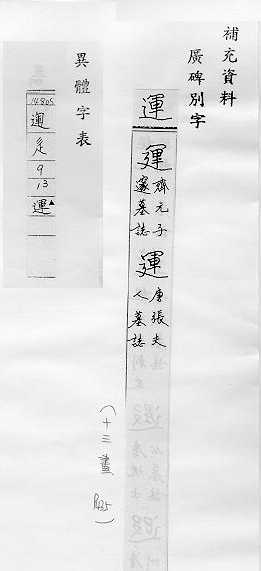 補充資料
廣碑別字
運
運
齊元子
邃墓誌
運
唐張夫
人墓誌
(十三畫 P435)
異體字表
14805
辵
9
13
運▲